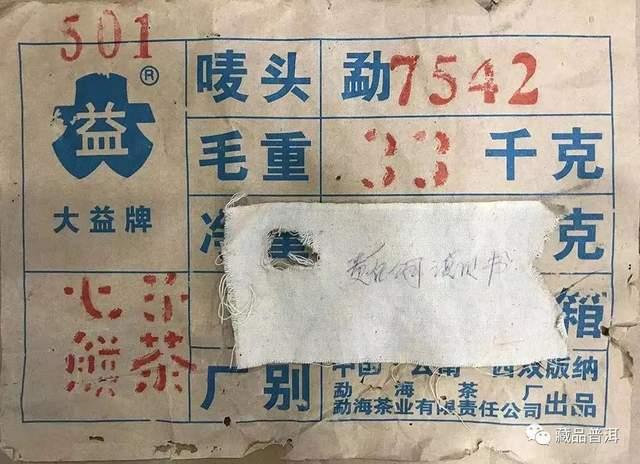 501
®
益
大益牌
唛头 勐7542
毛重 33 千克
净重 克
箱
七子
饼茶
厂别 中国 云南 西双版纳
勐海茶厂
勐海茶业有限责任公司 出品
藏品普洱